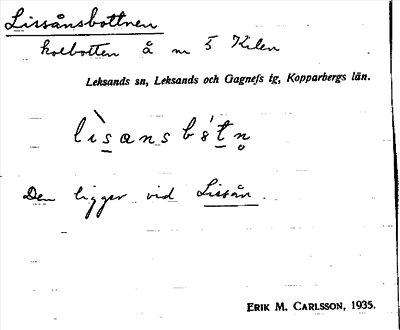 Lissånsbottnen
kolbotten å m 5 Kilen
Leksands sn, Leksands och Gagnefs tg, Kopparbergs län.
lìsansbótn̥
Den ligger vid Lissån.
ERIK M. CARLSSON, 1935.